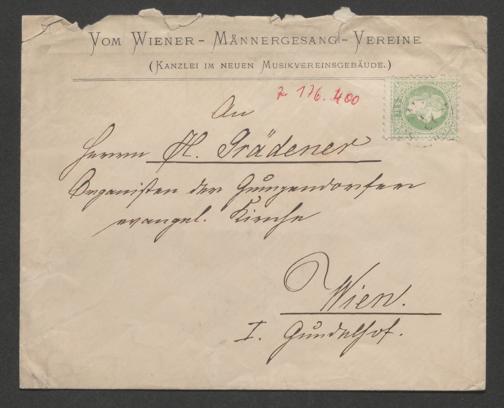 VOM WIENER-MÄNNERGESANG-VEREINE
(KANZLEI IM NEUEN MUSIKVEREINSGEBÄUDE.)
Z 176.400
An
Herrn H. Grädener
Organisten der Gumpendorfer
evangel. Kirche
Wien.
I. Gundelhof.